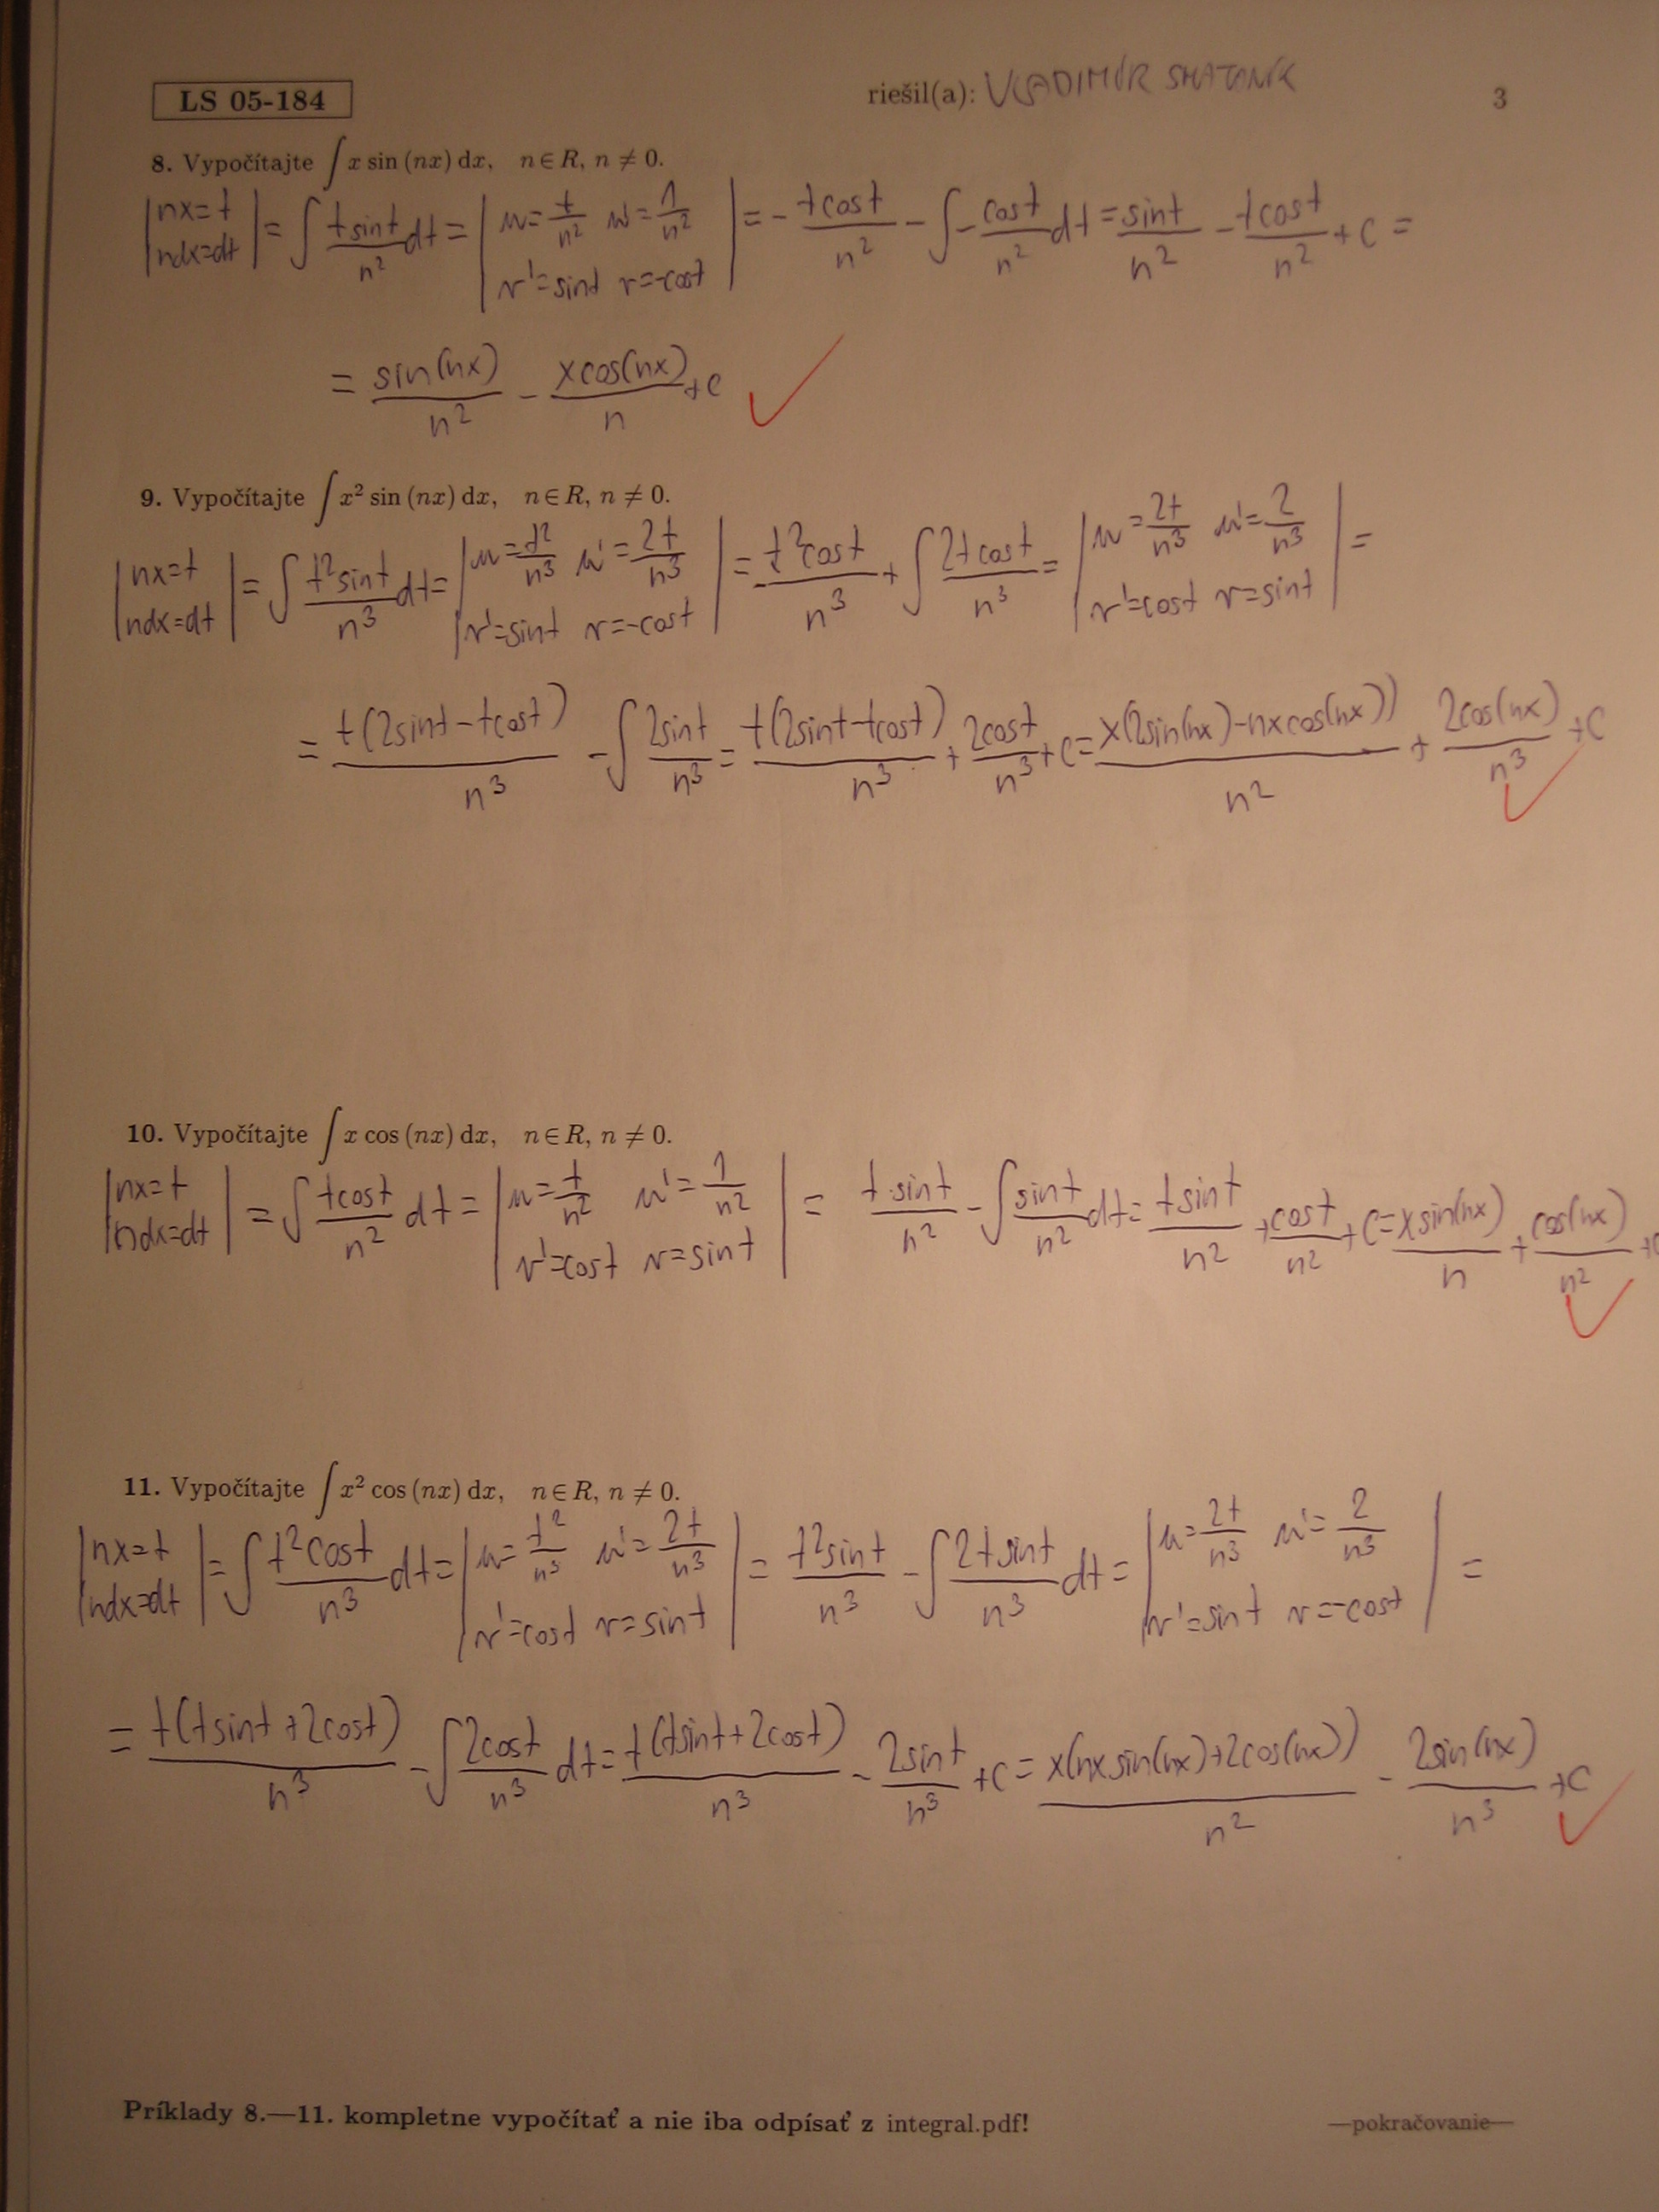 LS 05-184 riešil(a): VLADIMÍR SMATANÍK 3
8. Vypočítajte ∫ x sin (nx) dx, n ∈ R, n ≠ 0.
|nx=t ndx=dt| = ∫ (t sint)/n² dt = |u=t/n² u'=1/n² v'=sint v=-cost| = - (t cost)/n² - ∫ - cost/n² dt = sint/n² - (t cost)/n² + c =
= sin(nx)/n² - (x cos(nx))/n + c
9. Vypočítajte ∫ x² sin (nx) dx, n ∈ R, n ≠ 0.
|nx=t ndx=dt| = ∫ (t² sint)/n³ dt = |u=t²/n³ u'=2t/n³ v'=sint v=-cost| = - (t² cost)/n³ + ∫ (2t cost)/n³ = |u=2t/n³ u'=2/n³ v'=cost v=sint| =
= t(2sint - t cost)/n³ - ∫ 2sint/n³ = t(2sint - t cost)/n³ + 2cost/n³ + c = x(2sin(nx) - nx cos(nx))/n² + 2cos(nx)/n³ + c
10. Vypočítajte ∫ x cos (nx) dx, n ∈ R, n ≠ 0.
|nx=t ndx=dt| = ∫ (t cost)/n² dt = |u=t/n² u'=1/n² v'=cost v=sint| = (t sint)/n² - ∫ sint/n² dt = (t sint)/n² + cost/n² + c = (x sin(nx))/n + cos(nx)/n² + c
11. Vypočítajte ∫ x² cos (nx) dx, n ∈ R, n ≠ 0.
|nx=t ndx=dt| = ∫ (t² cost)/n³ dt = |u=t²/n³ u'=2t/n³ v'=cost v=sint| = (t² sint)/n³ - ∫ (2t sint)/n³ dt = |u=2t/n³ u'=2/n³ v'=sint v=-cost| =
= t(t sint + 2cost)/n³ - ∫ 2cost/n³ dt = t(t sint + 2cost)/n³ - 2sint/n³ + c = x(nx sin(nx) + 2cos(nx))/n² - 2sin(nx)/n³ + c
Príklady 8.—11. kompletne vypočítať a nie iba odpísať z integral.pdf! —pokračovanie—